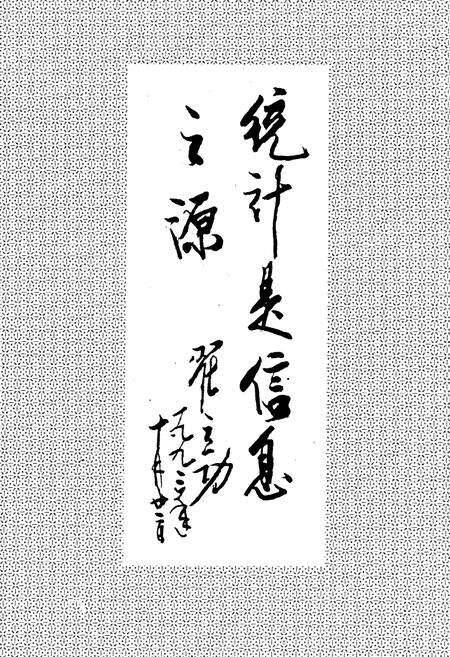 统计是信息
之源
翟立功
一九九三年
十月廿二日